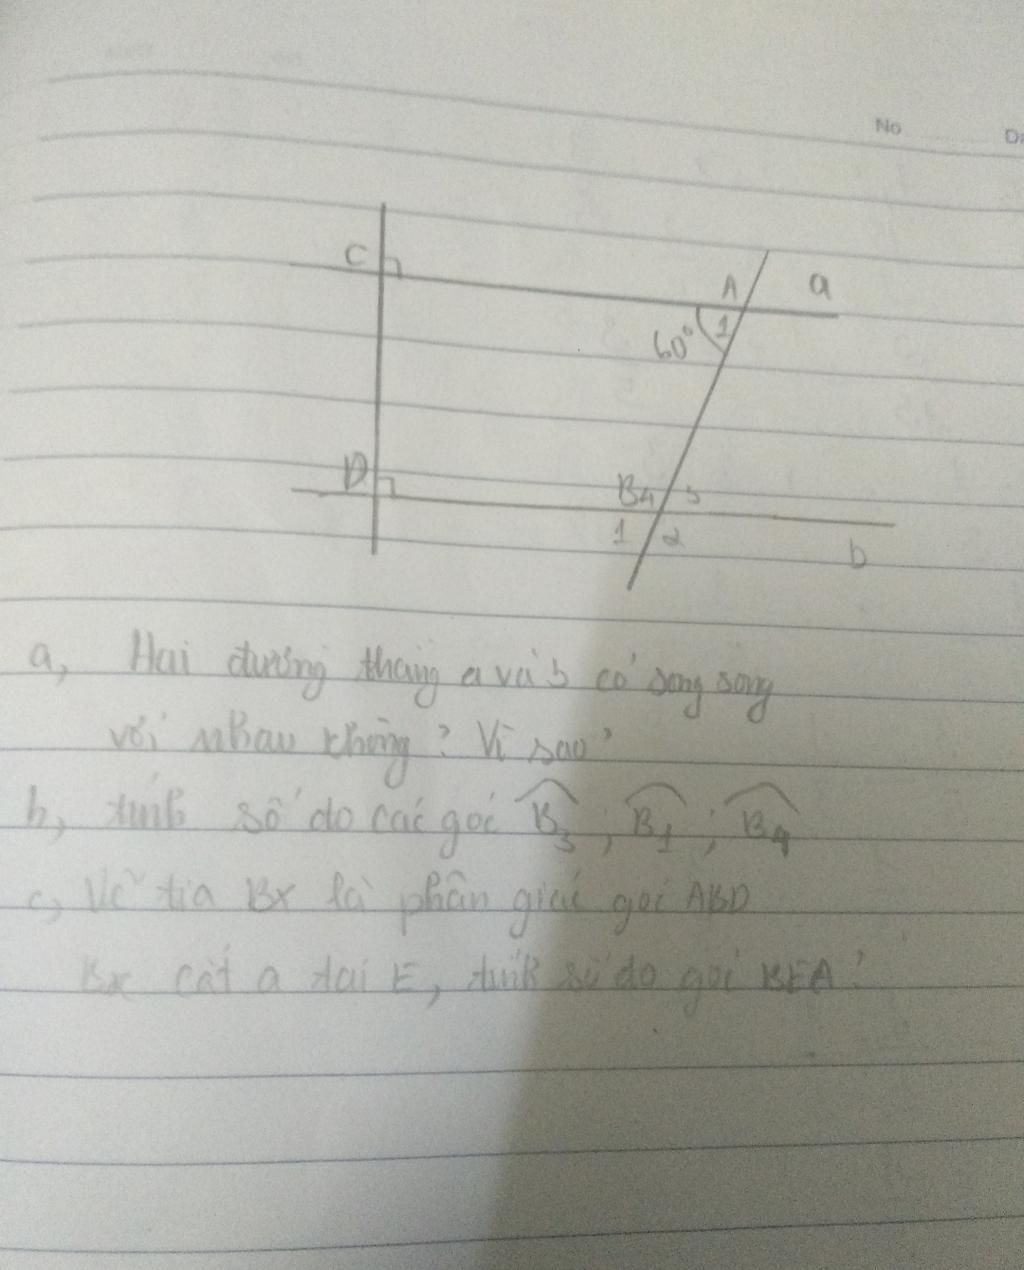 No
C
A
a
1
60°
D
B 4 3
1 2
b
a, Hai đường thẳng a và b có song song
với nhau không? Vì sao?
b, tính số đo các góc B̂3 ; B̂1 ; B̂4
c, Vẽ tia Bx là phân giác góc ABD
Bx cắt a tại E, tính số đo góc BEA?